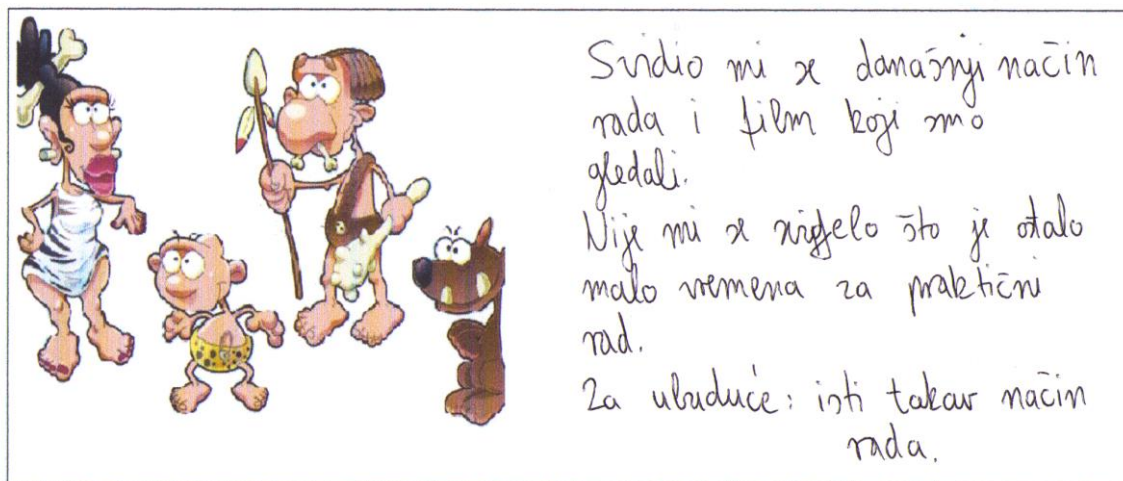 Svidio mi se današnji način
rada i film koji smo
gledali.
Nije mi se svidjelo što je ostalo
malo vremena za praktični
rad.
Za ubuduće: isti takav način
rada.